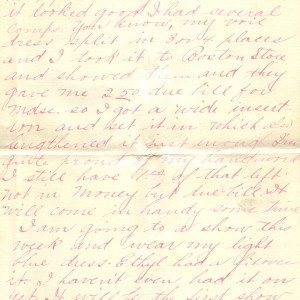 it looked good I had several
comps you know, my voil
dress split in 3 or 4 places
and I took it to Boston Store
and showed them and they
gave me 2 50 due bill for
Mdse. so I got a wide insert
ion and set it in which
lengthened it just enough. I'm
quite proud of my handwork
I still have of that left
not in money but due bill It
will come in handy some time
I am going to a show this
week and wear my light
blue dress. Ethyl had a
it. I haven't even had it on
yet. It will be the first show